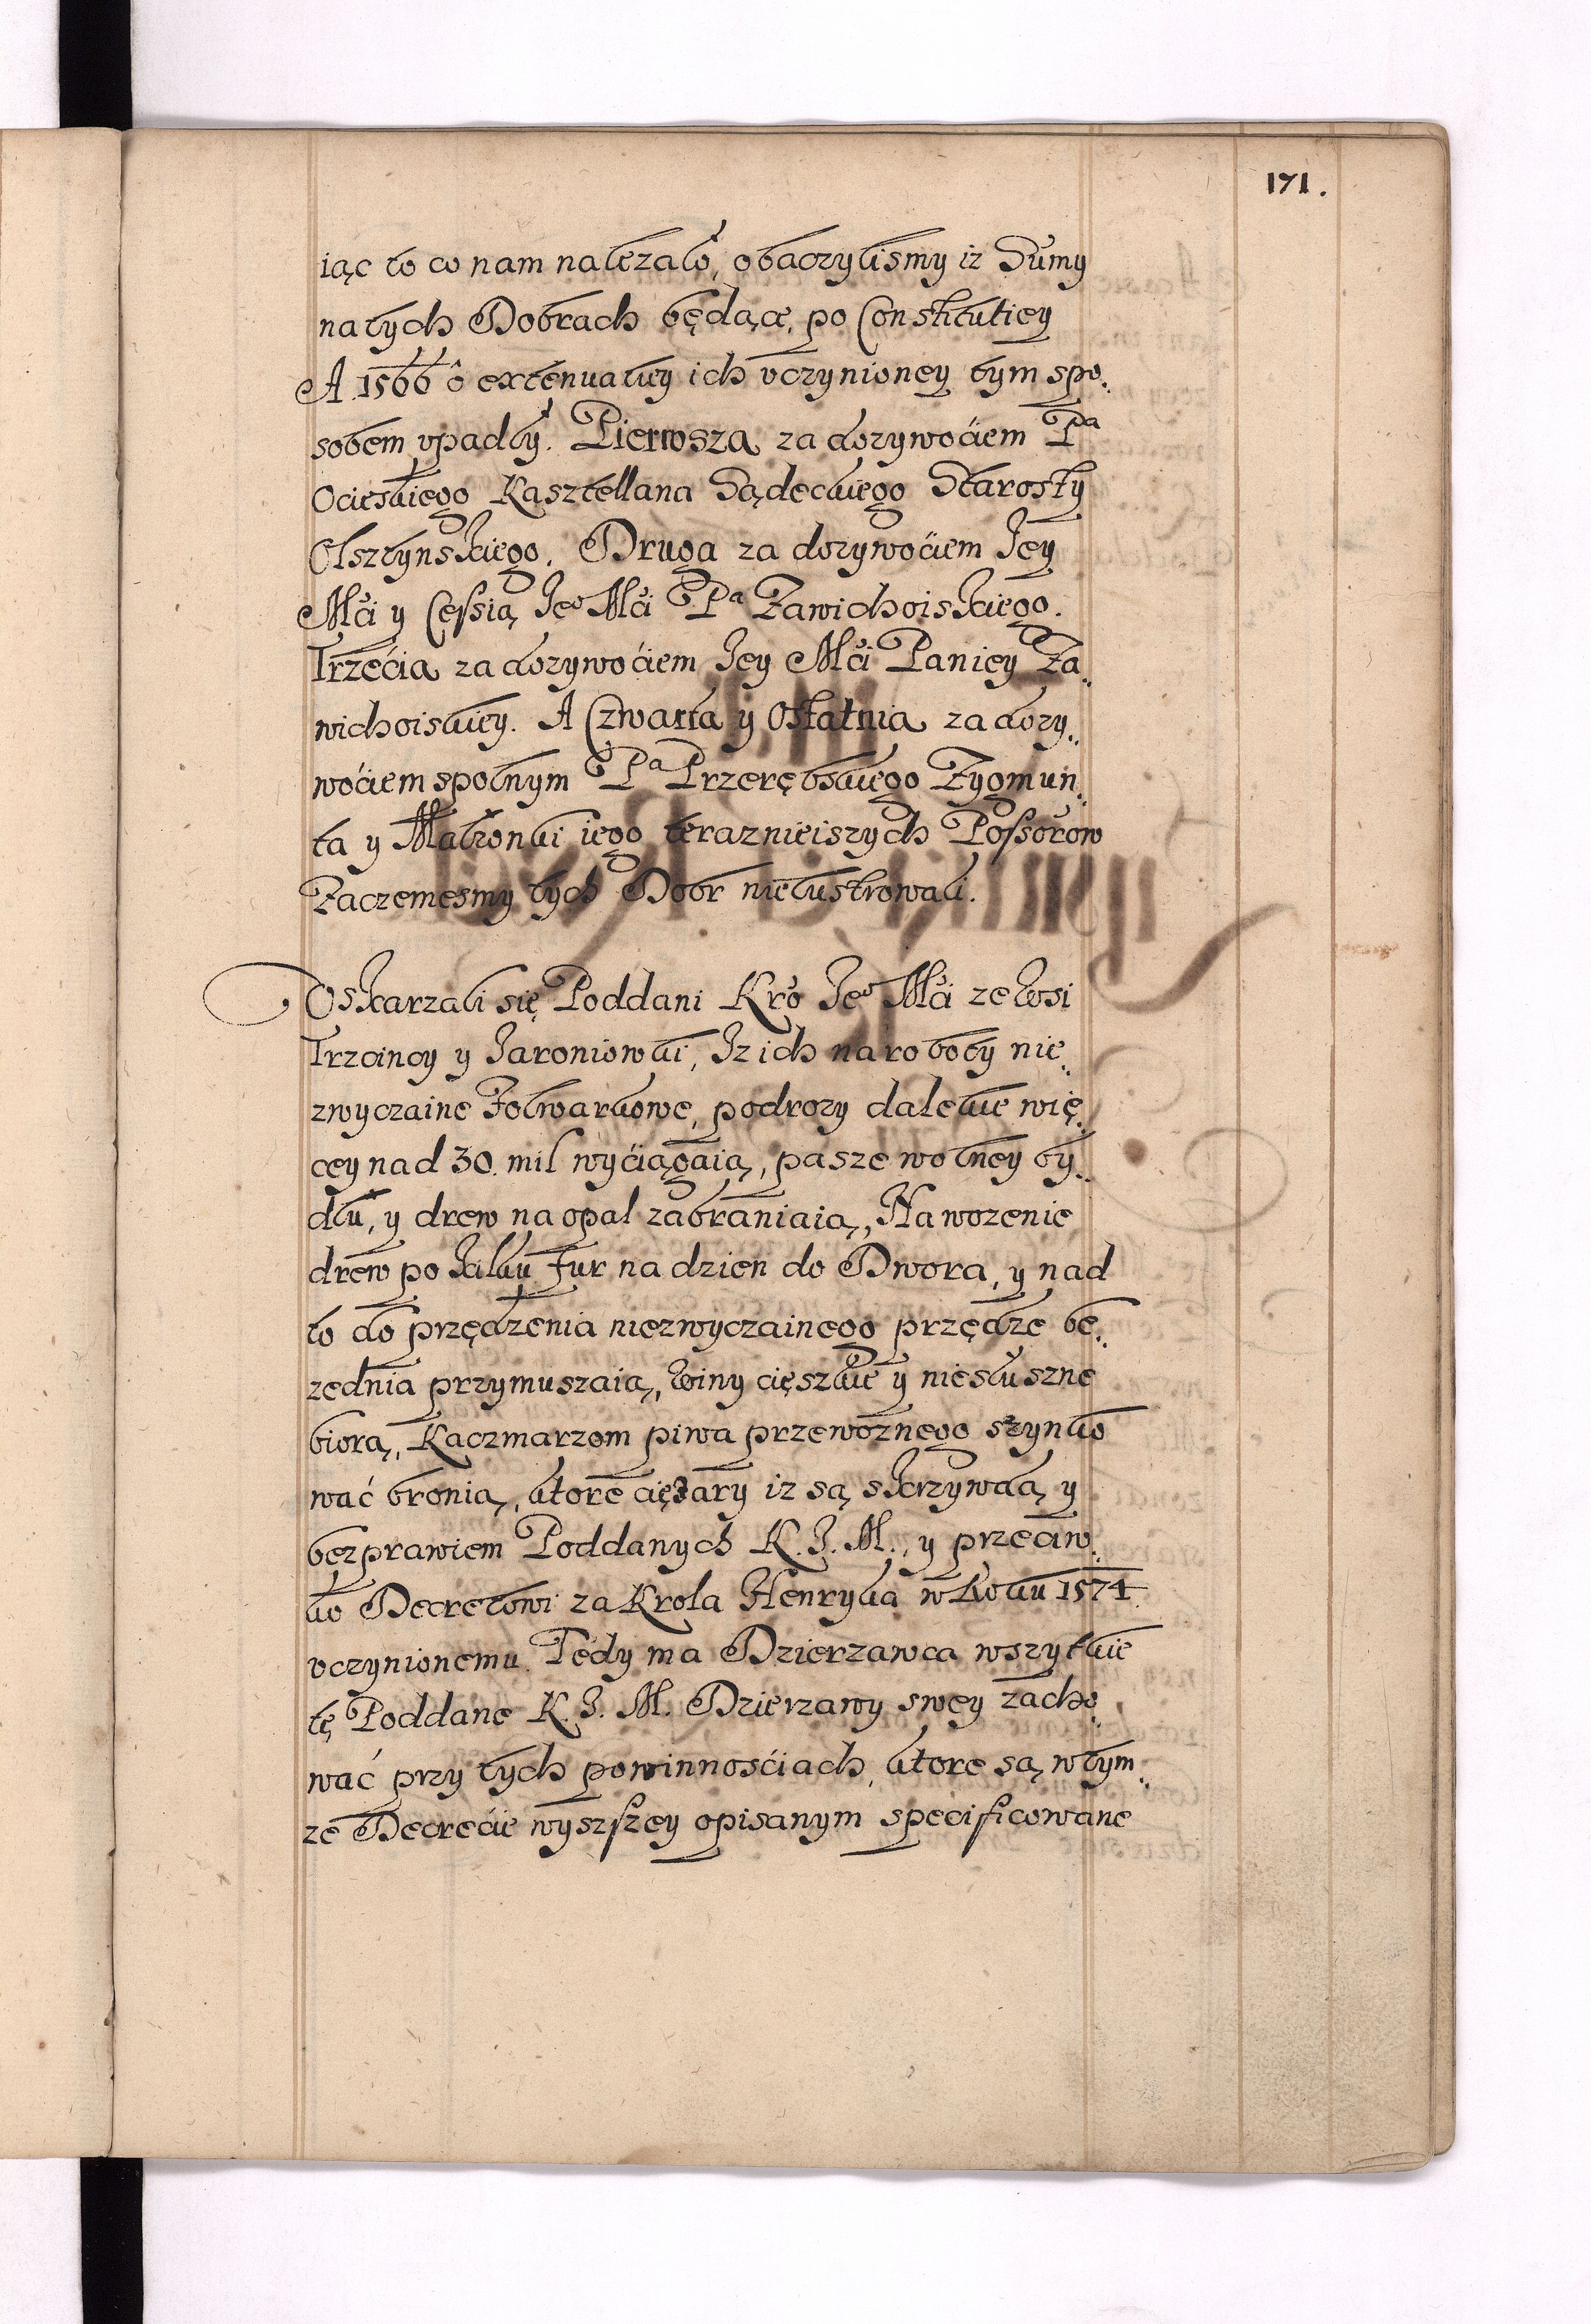 171.
iąc to co nam należało, obaczylismy iz Sumy
na tych Dobrach będące, po Constitutiey
A. 1566 o extenuatiey ich vczynioney tym spo„
sobem vpadły. Pierwsza za dozywociem Pa
Ocieskiego Kasztellana Sądeckiego Starosty
Olsztynskiego. Druga za dozywociem Jey
Mći y Cessią Jeo Mći Pa Zawichoiskiego.
Trzecia za dozywociem Jey Mći Paniey Za„
wichoiskiey. A Czwarta y Ostatnia za dozy„
wociem spolnym Pa Przerębskiego Zygmun„
ta y Małzonki iego teraznieiszych Possorow
Zaczemesmy tych Dobr nielustrowali.
Oskarzali się Poddani Kro Jeo Mći ze Wsi
Trzcincy y Jaroniowki, Iz ich na roboty nie„
zwyczaine Folwarkowe, podrozy dalekie wię„
cey nad 30. mil wyciągaią, pasze wolney by„
dłu, y drew na opal zabraniaią, Na wozenie
drew po kilku Fur na dzien do Dwora, y nad
to do przędzenia niezwyczainego przędze be„
zednia przymuszaią, Winy cięszkie y niesłuszne
biorą, Kaczmarzom piwa przewoznego szynko
wać bronią, ktore cięzary iz są skrzywdą y
bezprawiem Poddanych K. J. M., y przeciw„
ko Decretowi za Krola Henryka w Roku 1574.
vczynionemu. Tedy ma Dzierzawca wszytkie
tę Poddane K. J. M. Dzierzawy swey zacho„
wać przy tych powinnościach, ktore są w tym„
ze Decrecie wyszszey opisanym specificowane